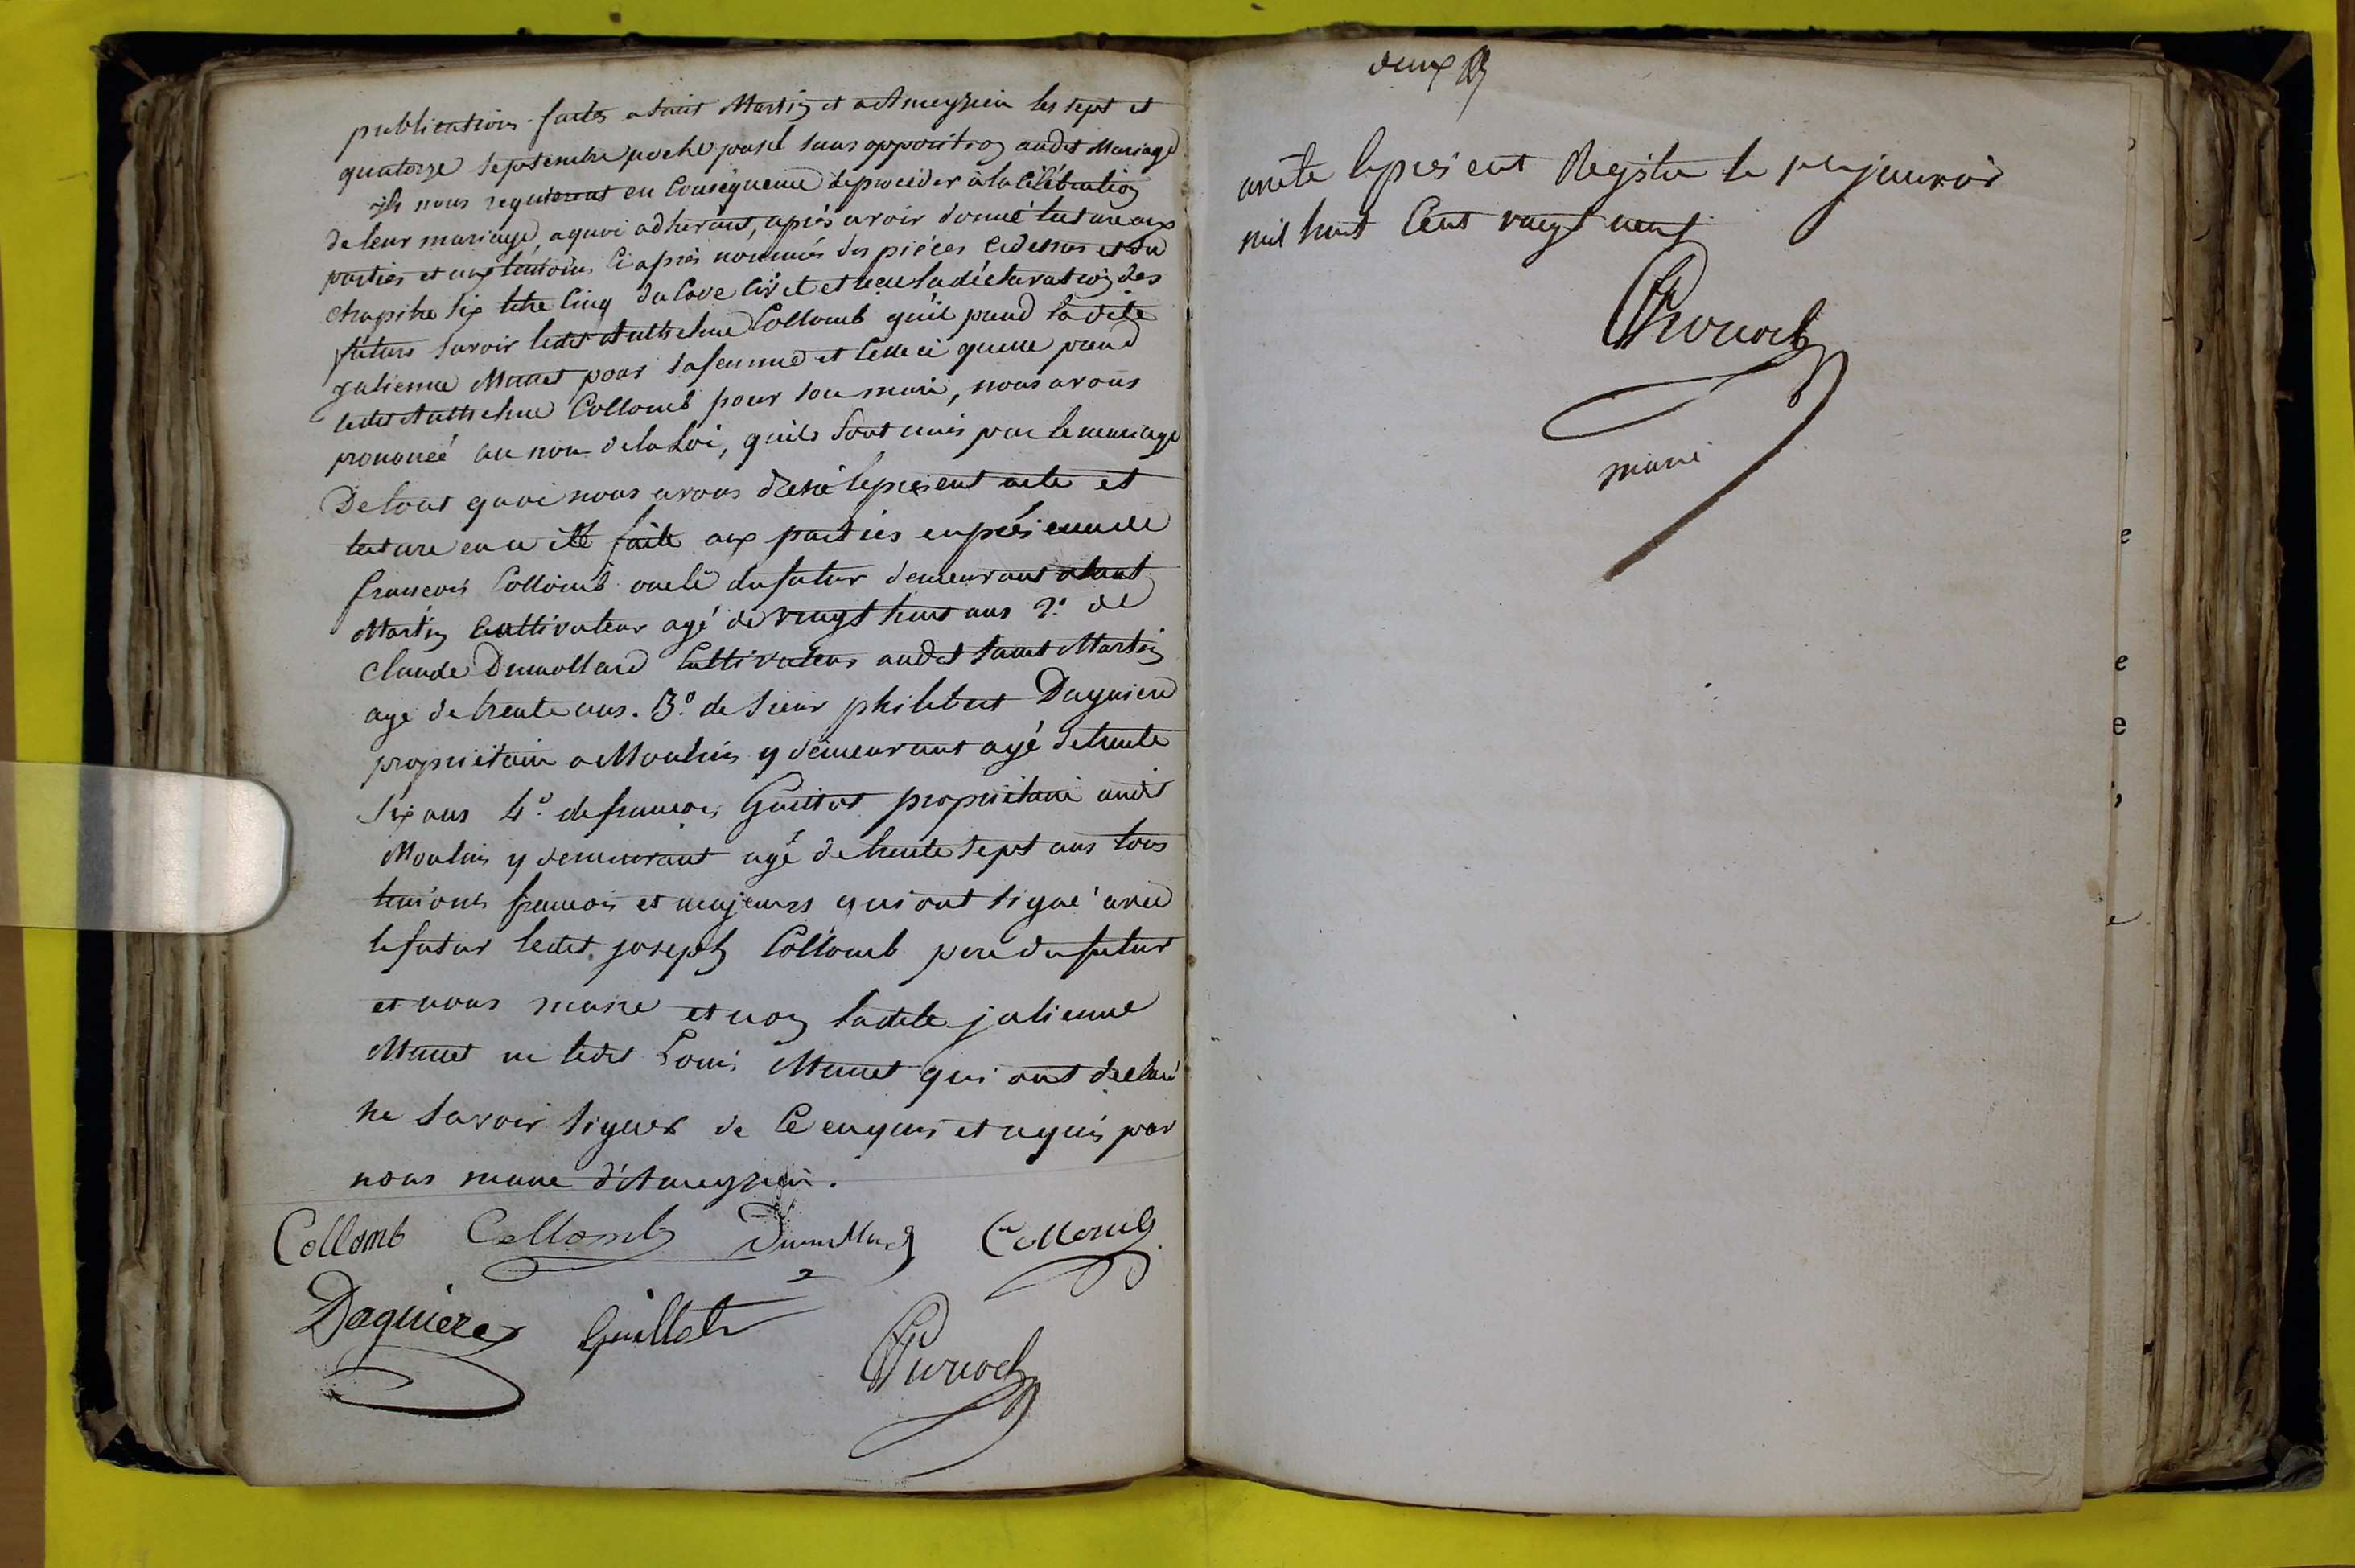 publications faites a Saint Martin et a Ameyzieu les sept et
quatorze septembre proche passé sans opposition audit Mariage
ils nous requierent en Conséquence de procéder à la Célébration
de leur mariage, a quoi adhérant, après avoir donné lecture aux
parties et aux temoins Ci après nommés des pièces Cidessus et du
chapitre six titre Cinq du Code Civil et reçu la déclaration des
futurs savoir ledit Anthelme Collomb qu'il prend la dite
julienne Munet pour sa femme et Celle ci quelle prend
ledit Anthelme Collomb pour son mari, nous avons
prononcé au nom de la Loi, quils sont unis par le mariage
De tout quoi nous avons dressé le présent acte et
lecture en a été faite aux parties en présence de
françois Collomb oncle du futur demeurant a Saint
Martin Cultivateur agé de vingt huit ans 2.º de
Claude Dumollard Cultivateur audit Saint Martin
agé de trente ans. 3.º de sieur philibert Daguiere
propriétaire a Moulin y demeurant agé de trente
six ans 4.º de françois Guillot propriétaire audit
Moulin y demeurant agé de trente sept ans tous
temoins francois et majeurs qui ont signé avec
le futur ledit joseph Collomb pere du futur
et nous maire et non ladite julienne
Munet ni ledit Louis Munet qui ont declaré
ne savoir signer de Ce enquis et requis par
nous maire d'Ameyzieu.
Collomb Collomb Dumollard Collomb
Daguiere Guillot
deux
arrêté le présent Registre le per janvier
mil huit Cent vingt neuf
maire